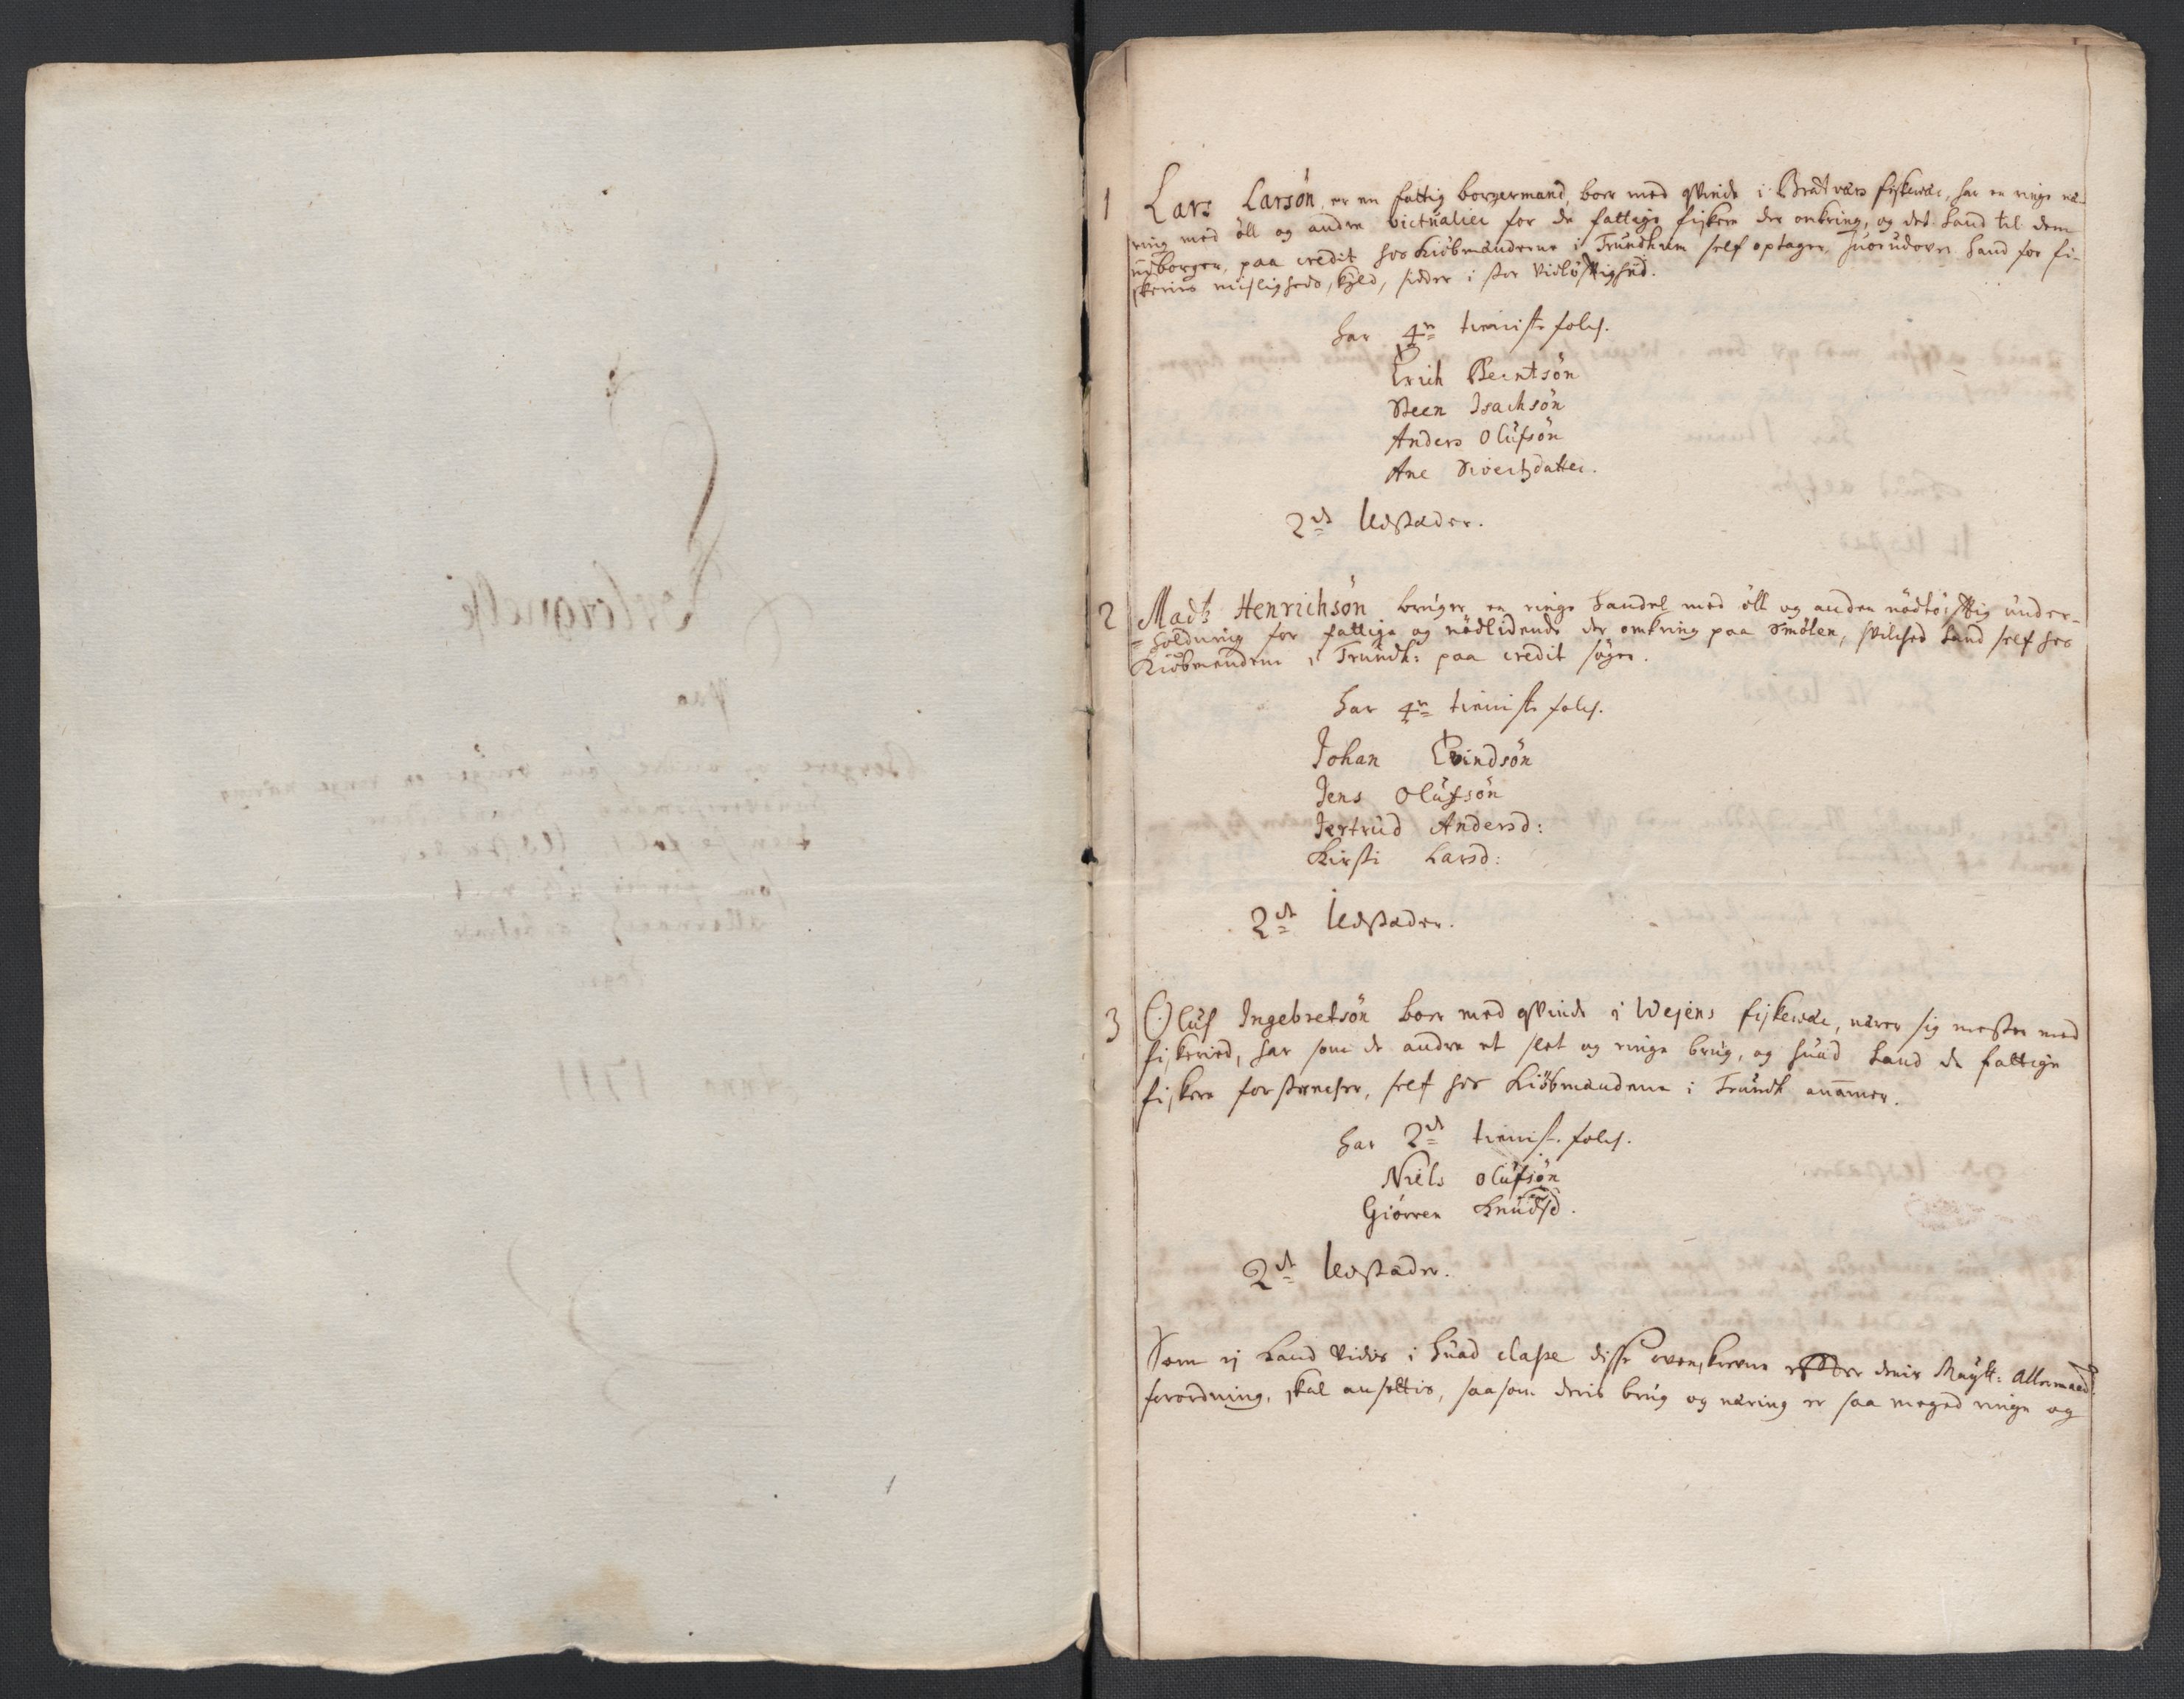 1 Lars Larsön er en fattig borgermand, boer med qvinde i Bratværs fiskewær, har en ringe næ-
ring med öll og andre victualier for de fattige fiskere der omkring, og det hand til dem
udborger, paa credit hos Kiöbmænderne i Trundhiem self optager, huorudover hand for fi-
skeries misligheds skyld, sidder i stor vidlöfftighed.
har 4re tieniste folch.
Erich Berntsön
Steen Isachsön
Anders Olüfsön
Ane Sivertzdatter.
2de Udstæder.
2 Madz Henrichsön bruger en ringe handel med öll og anden nödtörfftig under-
=holdning for fattige og nödlidende der omkring paa Smölen, hvilched hand self hos
Kiöbmendene i Trundh: paa credit söger.
har 4re tieniste folch.
Johan Evindsön
Jens Olüfsön
Jertrüd Andersd:
Kirsti Larsd:
2de Udstæder.
3 Olüf Ingebretsön boer med qvinde i Wejens fiskewær, nærer sig mesten med
fiskeried, har som de andre et slet og ringe brüg, og hüad hand de fattige
fiskere forstrecher, self hos Kiöbmændene i Trundh annammer.
har 2de tieniste folch.
Niels Olüfsön
Giörren Knüdsd.
2de Udstæder.
Som ej kand vides i hüad classe disse ovenskrevne effter deris Maytt: Allernaad:
forordning, skal ansettis, saasom deris brüg og næring er saa meged ringe og